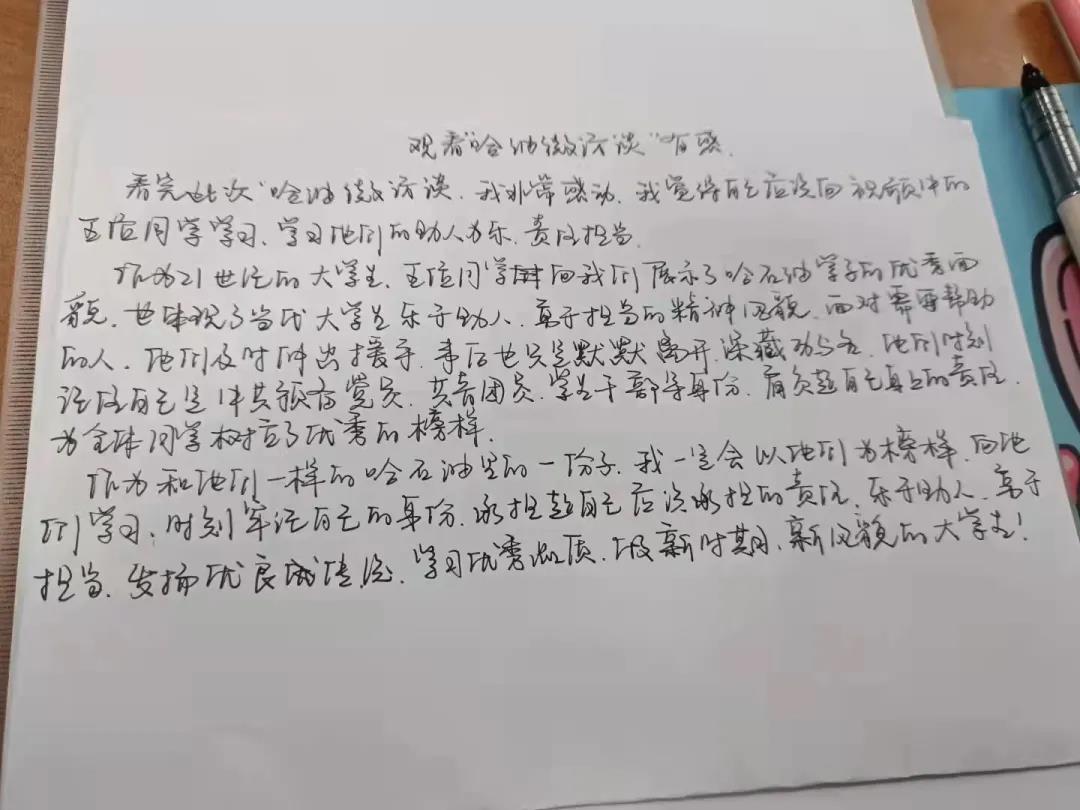 观看“哈油微访谈”有感.
看完此次“哈油微访谈.我非常感动.我觉得自己应该向视频中的
五位同学学习、学习他们的助人为乐.责任担当.
作为21世纪的大学生.五位同学向我们展示了哈石油学子的优秀面
貌.也体现了当代大学生乐于助人.勇于担当的精神风貌.面对需要帮助
的人.他们及时伸出援手.事后也只是默默离开.深藏功与名.他们时刻
记住自己是中共预备党员.共青团员.学生干部等身份.肩负起自己身上的责任.
为全体同学树立了优秀的榜样.
作为和他们一样的哈石油里的一份子.我一定会以他们为榜样.向他
们学习.时刻牢记自己的身份.承担起自己应该承担的责任.乐于助人.勇于
担当.发扬优良传统.学习优秀品质.做新时期.新风貌的大学生!